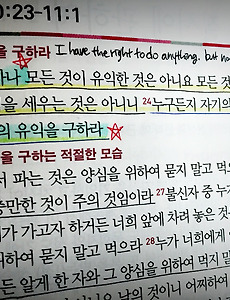 0:23-11:1
을 구하라 I have the right to do anything. but no
나 모든 것이 유익한 것은 아니요 모든 것
을 세우는 것은 아니니 24 누구든지 자기의
의 유익을 구하라
을 구하는 적절한 모습
서 파는 것은 양심을 위하여 묻지 말고 먹으
충만한 것이 주의 것임이라 27 불신자 중 누가
희가 가고자 하거든 너희 앞에 차려 놓은 것은
위하여 묻지 말고 먹으라 28 누가 너희에게 이
든 알게 한 자와 그 양심을 위하여 먹지 말
남의 것이니 어찌하여